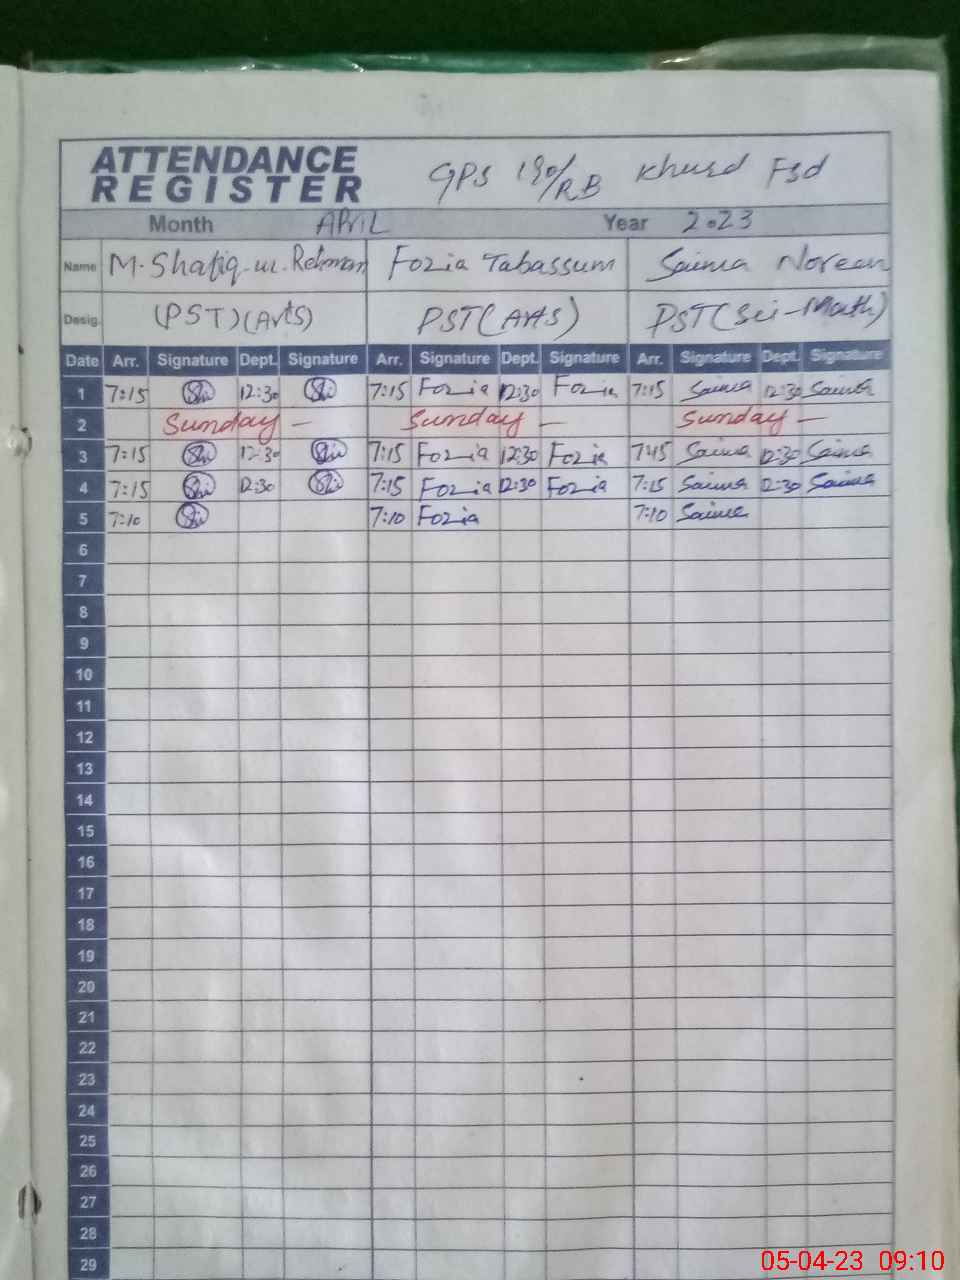 ATTENDANCE REGISTER
GPS 190/RB Khurd Fsd
Month APRIL Year 2023
Name M. Shafiq-ur-Rehman Fozia Tabassum Saima Noreen
Desig. (PST)(Arts) PST(Arts) PST(Sci-Math)
Date Arr. Signature Dept. Signature Arr. Signature Dept. Signature Arr. Signature Dept. Signature
1 7:15 12:30 7:15 Fozia 12:30 Fozia 7:15 Saima 12:30 Saima
2 Sunday – Sunday – Sunday –
3 7:15 12:30 7:15 Fozia 12:30 Fozia 7:15 Saima 12:30 Saima
4 7:15 12:30 7:15 Fozia 12:30 Fozia 7:15 Saima 12:30 Saima
5 7:10 7:10 Fozia 7:10 Saima
6
7
8
9
10
11
12
13
14
15
16
17
18
19
20
21
22
23
24
25
26
27
28
29
05-04-23 09:10